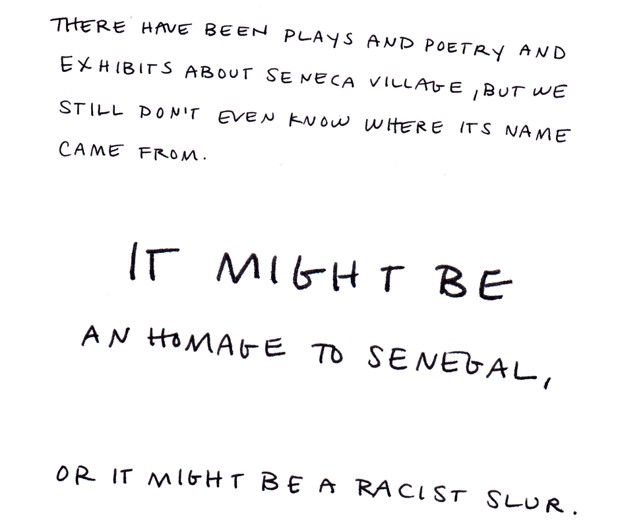 THERE HAVE BEEN PLAYS AND POETRY AND
EXHIBITS ABOUT SENECA VILLAGE, BUT WE
STILL DON'T EVEN KNOW WHERE ITS NAME
CAME FROM.
IT MIGHT BE
AN HOMAGE TO SENEGAL,
OR IT MIGHT BE A RACIST SLUR.